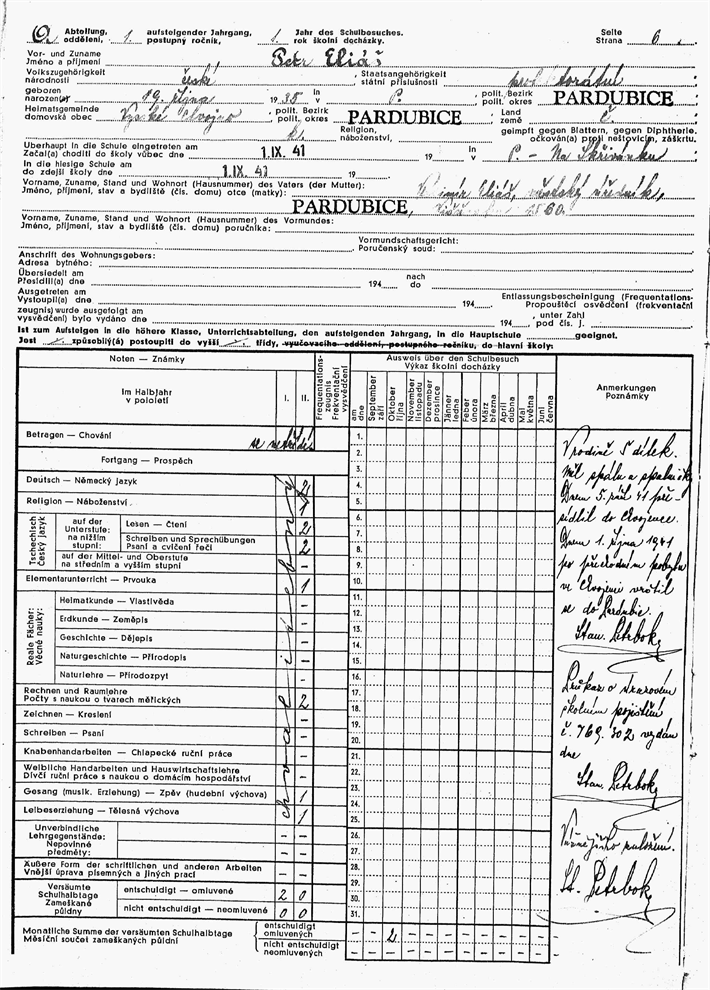 Abteilung, 1. aufsteigender Jahrgang, 1. Jahr des Schulbesuches. Seite
oddělení, postupný ročník, rok školní docházky. Strana 6.
Vor- und Zuname
Jméno a příjmení Petr Eliáš
Volkszugehörigkeit Staatsangehörigkeit
národnosti české státní příslušnosti
geboren in polit. Bezirk
narozen 19. října 1935 v P. polit. okres PARDUBICE
Heimatsgemeinde polit. Bezirk Land
domovská obec polit. okres PARDUBICE země č.
Religion, geimpft gegen Blattern, gegen Diphtherie.
náboženství, očkován(a) proti neštovicím, záškrtu.
Überhaupt in die Schule eingetreten am in
Začal(a) choditi do školy vůbec dne 1. IX. 41 19 v P. - Na Skřivánku
In die hiesige Schule am
do zdejší školy dne 1. IX. 41 19
Vorname, Zuname, Stand und Wohnort (Hausnummer) des Vaters (der Mutter):
Jméno, příjmení, stav a bydliště (čís. domu) otce (matky): Eliáš, úředník,
PARDUBICE,
Vorname, Zuname, Stand und Wohnort (Hausnummer) des Vormundes:
Jméno, příjmení, stav a bydliště (čís. domu) poručníka:
Vormundschaftsgericht:
Poručenský soud:
Anschrift des Wohnungsgebers:
Adresa bytného:
Übersiedelt am nach
Přesídlil(a) dne 194 do
Ausgetreten am Entlassungsbescheinigung (Frequentations-
Vystoupil(a) dne 194 Propouštěcí osvědčení (frekventační
zeugnis) wurde ausgefolgt am , unter Zahl
vysvědčení) bylo vydáno dne 194 pod čís. j.
Ist zum Aufsteigen in die höhere Klasse, Unterrichtsabteilung, den aufsteigenden Jahrgang, in die Hauptschule geeignet.
Jest způsobilý(á) postoupiti do vyšší třídy, vyučovacího oddělení, postupného ročníku, do hlavní školy:
Noten — Známky
Im Halbjahr
v pololetí
I. II.
Frequentations-
zeugnis
Frekventační
vysvědčení
Ausweis über den Schulbesuch
Výkaz školní docházky
am
dne
September
září
Oktober
října
November
listopadu
Dezember
prosince
Jänner
ledna
Feber
února
März
března
April
dubna
Mai
května
Juni
června
Anmerkungen
Poznámky
Betragen — Chování
Fortgang — Prospěch
Deutsch — Německý jazyk 2
Religion — Náboženství 1
Tschechisch
Český jazyk
auf der
Unterstufe:
na nižším
stupni:
Lesen — Čtení 2
Schreiben und Sprechübungen
Psaní a cvičení řeči 2
auf der Mittel- und Oberstufe
na středním a vyšším stupni –
Elementarunterricht — Prvouka 1
Reale Fächer:
Věcné nauky:
Heimatkunde — Vlastivěda –
Erdkunde — Zeměpis –
Geschichte — Dějepis –
Naturgeschichte — Přírodopis –
Naturlehre — Přírodozpyt –
Rechnen und Raumlehre
Počty s naukou o tvarech měřických 2
Zeichnen — Kreslení –
Schreiben — Psaní –
Knabenhandarbeiten — Chlapecké ruční práce –
Weibliche Handarbeiten und Hauswirtschaftslehre
Dívčí ruční práce s naukou o domácím hospodářství –
Gesang (musik. Erziehung) — Zpěv (hudební výchova) 1
Leibeserziehung — Tělesná výchova 1
chvalitebný
Unverbindliche
Lehrgegenstände:
Nepovinné
předměty:
– –
– –
Äußere Form der schriftlichen und anderen Arbeiten
Vnější úprava písemných a jiných prací – –
Versäumte
Schulhalbtage
Zameškané
půldny
entschuldigt — omluvené 2 0
nicht entschuldigt — neomluvené 0 0
Monatliche Summe der versäumten Schulhalbtage
Měsíční součet zameškaných půldní
entschuldigt
omluvených – 2 – – – – – – – –
nicht entschuldigt
neomluvených – – – – – – – – – –
1.
2.
3.
4.
5.
6.
7.
8.
9.
10.
11.
12.
13.
14.
15.
16.
17.
18.
19.
20.
21.
22.
23.
24.
25.
26.
27.
28.
29.
30.
31.
V rodině 5 dítek.
Měl spálu a spalničky
Dnem 5. září 41 pře-
sídlil do Chvojence.
Dnem 1. října 1941
po přechodném pobytu
ve Chvojenci vrátil
se do Pardubic.
Stan. Petrbok
Průkaz o úrazovém
školním pojištění
č. 769.302 vydán
dne
Stan. Petrbok
St. Petrbok